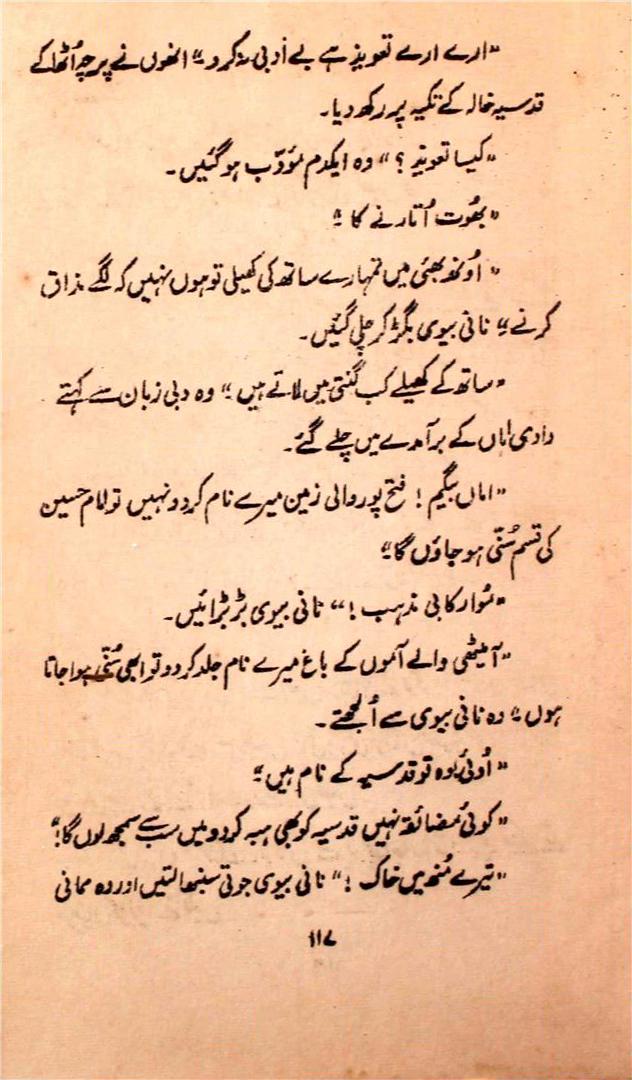 "ارے ارے تعویذ ہے بے اَدبی نہ کرو۔" انھوں نے پرچہ اُٹھا کے
قدسیہ خالہ کے تکیہ پر رکھ دیا۔
"کیسا تعویذ؟" وہ ایکدم مؤدّب ہو گئیں۔
"بھُوت اُتارنے کا۔"
"اُونھ بھئی میں تمہارے ساتھ کی کھیلی تو ہوں نہیں کہ لگے مذاق
کرنے۔" نانی بیوی بگڑ کر چلی گئیں۔
"ساتھ کے کھیلے کب گنتی میں لاتے ہیں۔" وہ دبی زبان سے کہتے
دادی اماں کے برآمدے میں چلے گئے۔
"اماں بیگم! فتح پور والی زمین میرے نام کر دو نہیں تو امام حسین
کی قسم سُنّی ہو جاؤں گا۔"
"مُوا رکابی مذہب!" نانی بیوی بڑبڑائیں۔
"آمیٹھی والے آموں کے باغ میرے نام جلد کر دو تو ابھی سُنّی ہوا جاتا
ہوں۔" وہ نانی بیوی سے اُلجھتے۔
"اُوئی وہ تو قدسیہ کے نام ہیں۔"
"کوئی مُضائقہ نہیں قدسیہ کو بھی ہبہ کر دو میں سب سے سمجھ لوں گا۔"
"تیرے مُنھ میں خاک!" نانی بیوی جوتی سنبھالتیں اور وہ ممانی
۱۱۷